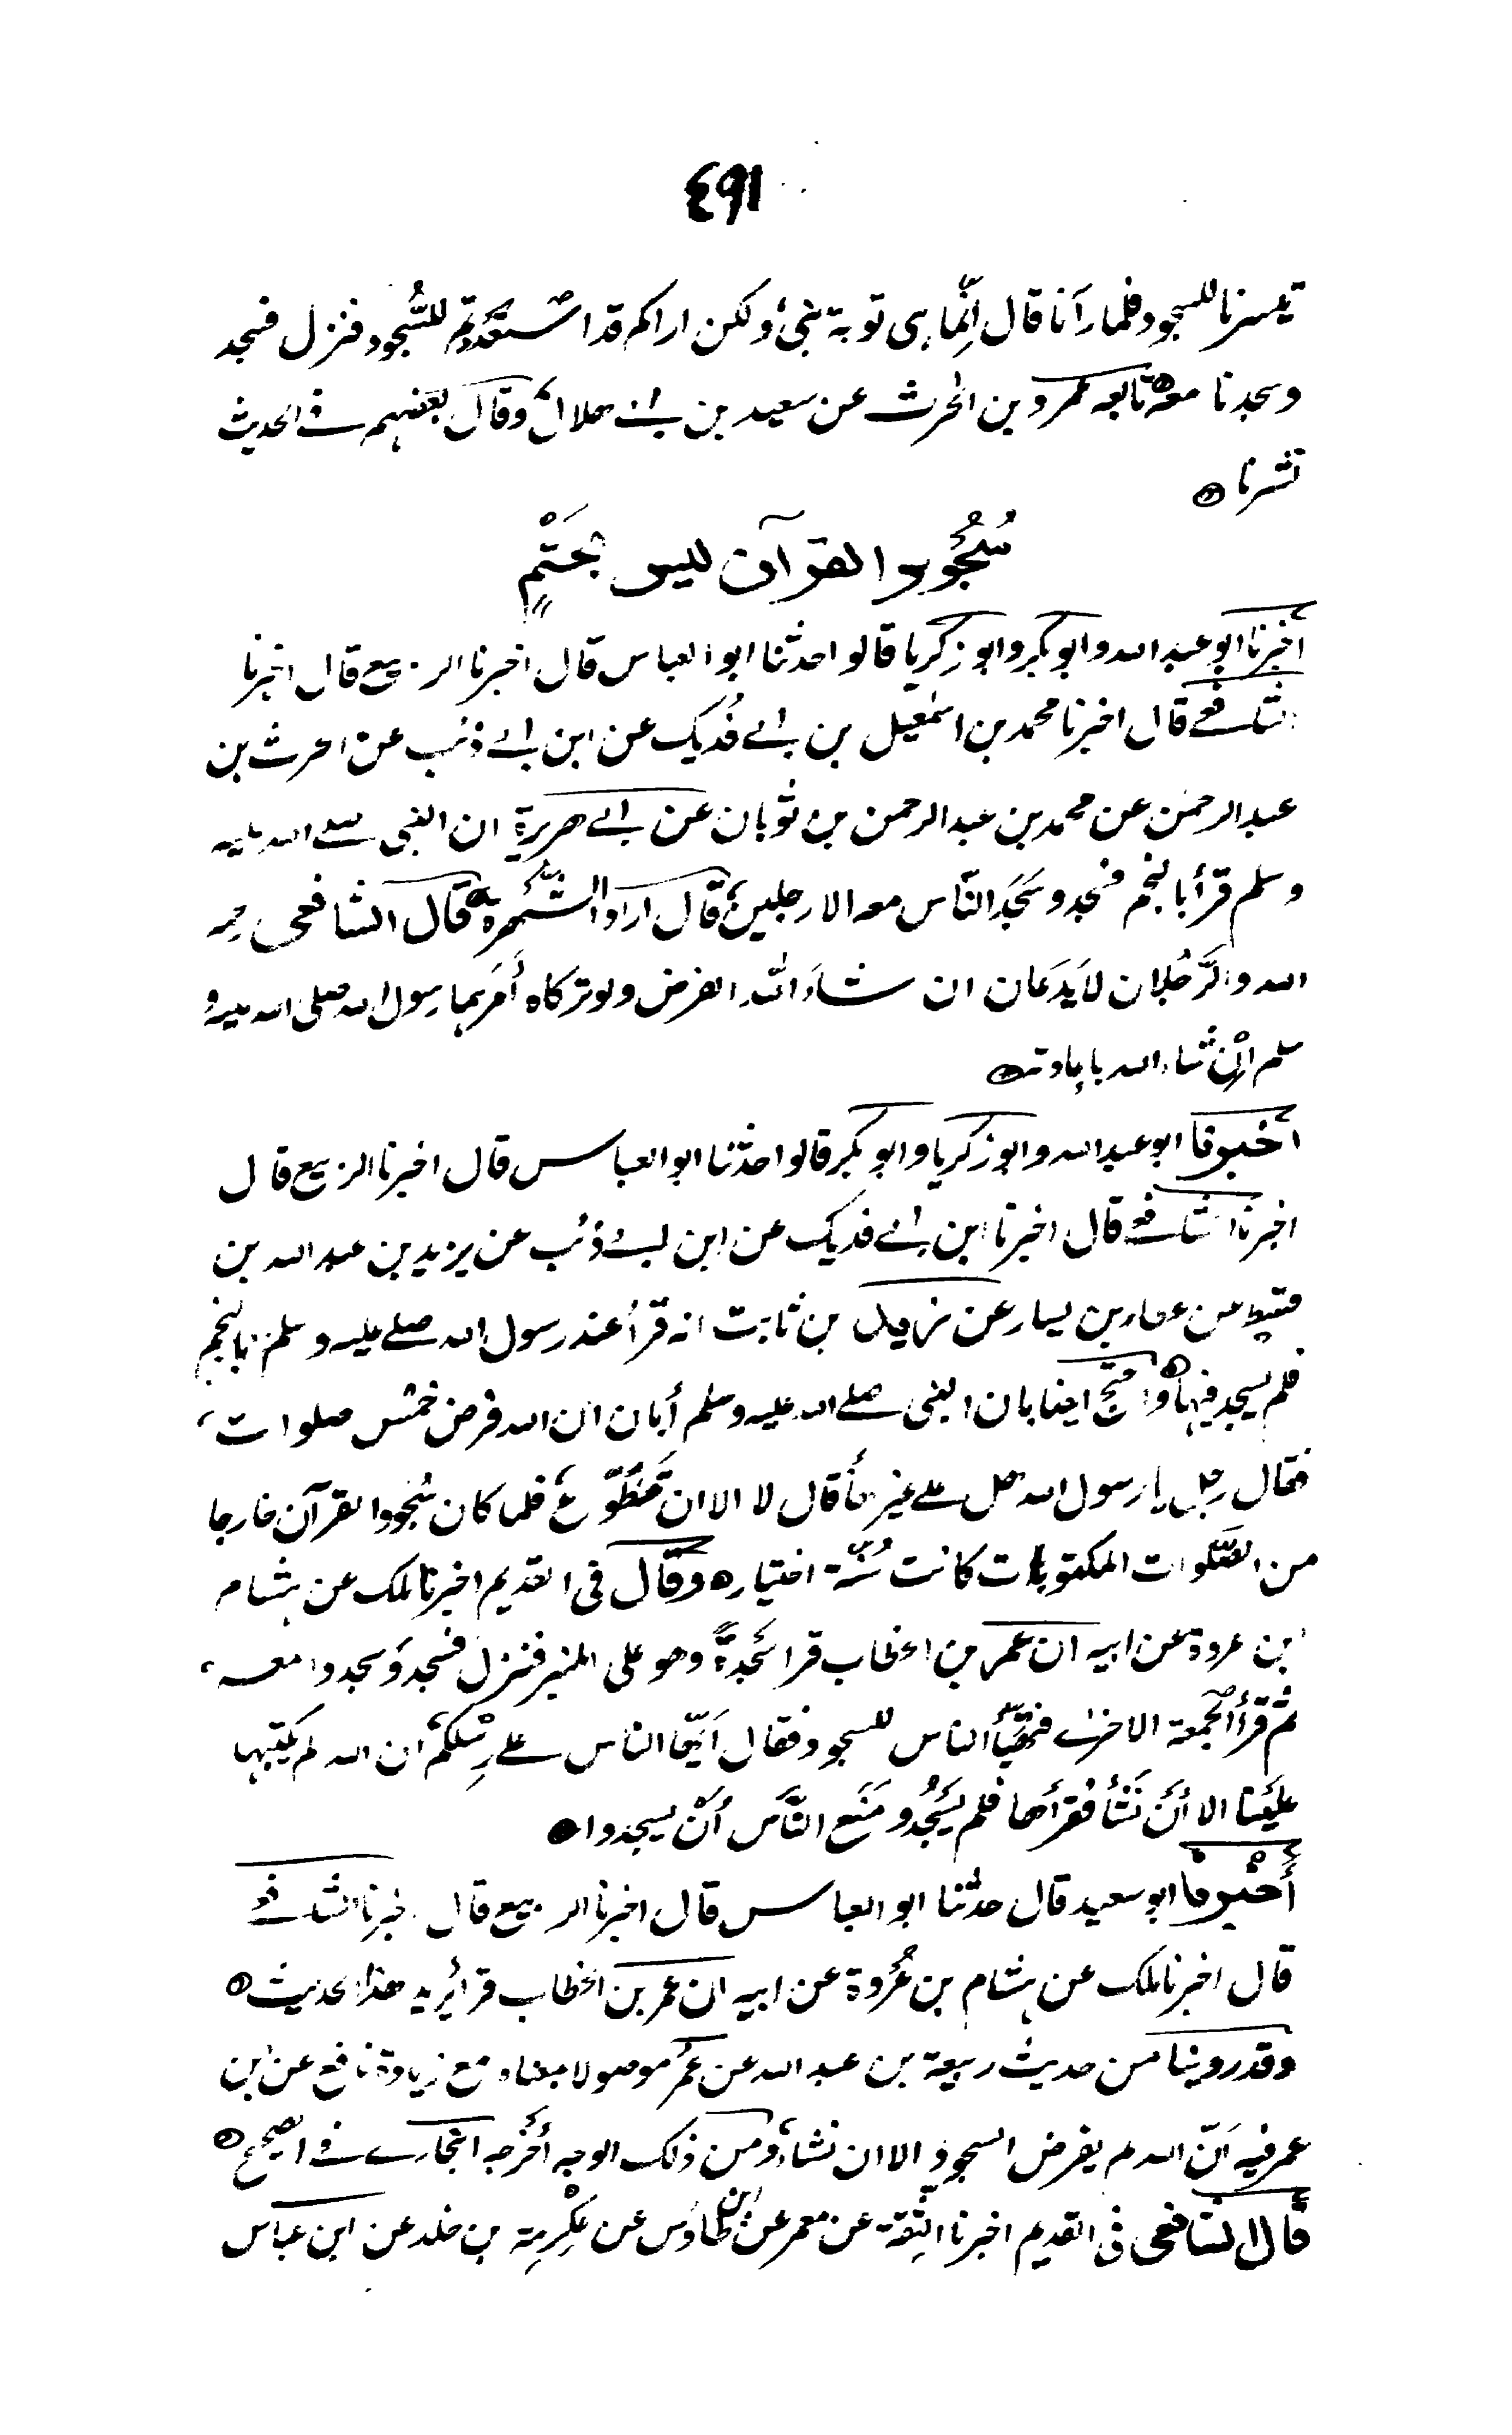 ٤٩١
تيسرنا للسجود فلما رآنا قال إنّما هى توبة نبىّ ولكن اراكم قد استعددتم للسُّجود فنزل فسجد
وسجدنا معه تابعه عمرو بن الحرث عن سعيد بن ابى هلال وقال بعضهم فى الحديث
تشرنا
سُجُود القرآن ليس بحَتْمٍ
أخبرنا ابو عبد الله وابو بكر وابو زكريا قالوا حدثنا ابو العباس قال اخبرنا الربيع قال اخبرنا
الشافعى قال اخبرنا محمد بن اسمٰعيل بن ابى فُديك عن ابن ابى ذئب عن الحرث بن
عبد الرحمن عن محمد بن عبد الرحمن بن ثوبان عن ابى هريرة ان النبى صلى الله عليه
وسلم قرأ بالنجم فسجد وسَجَد النّاس معه الا رجلين قال ارادا الشّهرة قال الشافعى رحمه
الله والرَّجُلان لا يَدَعان ان شاءَ الله الفرض ولو تركاه أمَرَهما رسول الله صلى الله عليه و
سلم إنْ شاء الله باعادته
أخبرنا ابو عبد الله وابو زكريا وابو بكر قالوا حدثنا ابو العباس قال اخبرنا الربيع قال
اخبرنا الشافعى قال اخبرنا ابن ابى فديك عن ابن ابى ذئب عن يزيد بن عبد الله بن
قسيط عن عطاء بن يسار عن زيد بن ثابت انه قرأ عند رسول الله صلى عليه وسلم بالنجم
فلم يسجد فيها واحتج ايضا بان النبى صلى الله عليه وسلم أبان ان الله فرض خمس صلوات
فقال رجل يا رسول الله هل على غيرها قال لا الا ان تَطَوَّع فلما كان سُجود القرآن خارجا
من الصَّلوات المكتوبات كانت سُنّة اختيار وقال فى القديم اخبرنا ملك عن هشام
ابن عروة عن ابيه ان عمر بن الخطاب قرا سَجدةً وهو على المنبر فنزل فسجد وسجدوا معه
ثم قرأ الجمعة الاخرى فتهيّأ الناس للسجود فقال أيّها الناس على رِسْلِكُم ان الله لم يكتبها
علَيْنا الا أنْ نَشَأ فقرأها فلم يَسْجُد ومَنَع النَّاس أنْ يسجدوا
أخبرنا ابو سعيد قال حدثنا ابو العباس قال اخبرنا الربيع قال اخبرنا الشافعى
قال اخبرنا ملك عن هشام بن عُروة عن ابيه ان عمر بن الخطاب قرا يُريد هذا الحديث
وقد روينا من حديث ربيعة بن عبد الله عن عُمَر موصولا معناه مع زيادة نافع عن ابن
عمر فيه أنّ الله لم يفرض السجود الا ان نشاء ومن ذلك الوجه أخْرَجه البخارى فى الصحيح
قال الشافعى فى القديم اخبرنا الثِقة عن معمر عن ابن طاوُس عن عِكْرِمة بن خلد عن ابن عباس